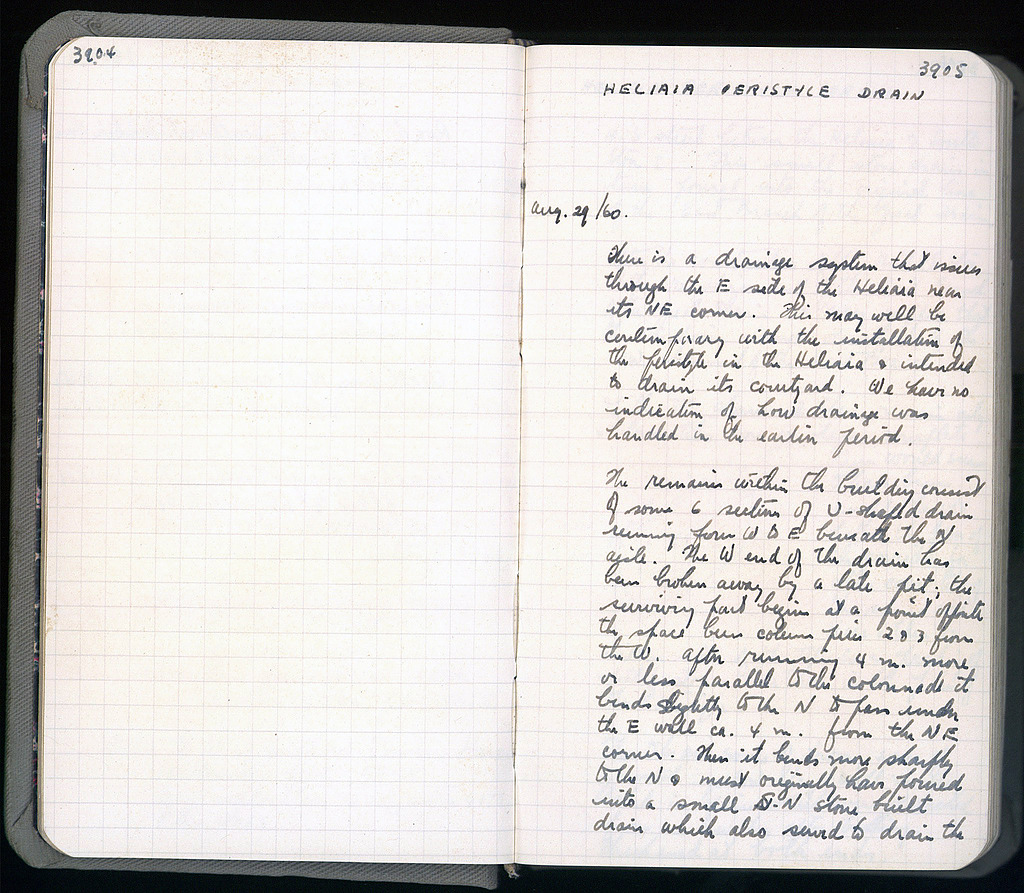 3904
3905
HELIAIA PERISTYLE DRAIN
Aug. 29/60.
There is a drainage system that issues
through the E side of the Heliaia near
its NE corner. This may well be
contemporary with the installation of
the peristyle in the Heliaia & intended
to drain its courtyard. We have no
indication of how drainage was
handled in the earlier period.
The remains within the building consist
of some 6 sections of U-shaped drain
running from W to E beneath the N
aisle. The W end of the drain has
been broken away by a late pit; the
surviving part begins at a point opposite
the space betw column piers 2 & 3 from
the W. After running 4 m. more
or less parallel to the colonnade it
bends slightly to the N to pass under
the E wall ca. 4 m. from the NE
corner. Then it bends more sharply
to the N & must originally have poured
into a small S-N stone built
drain which also served to drain the